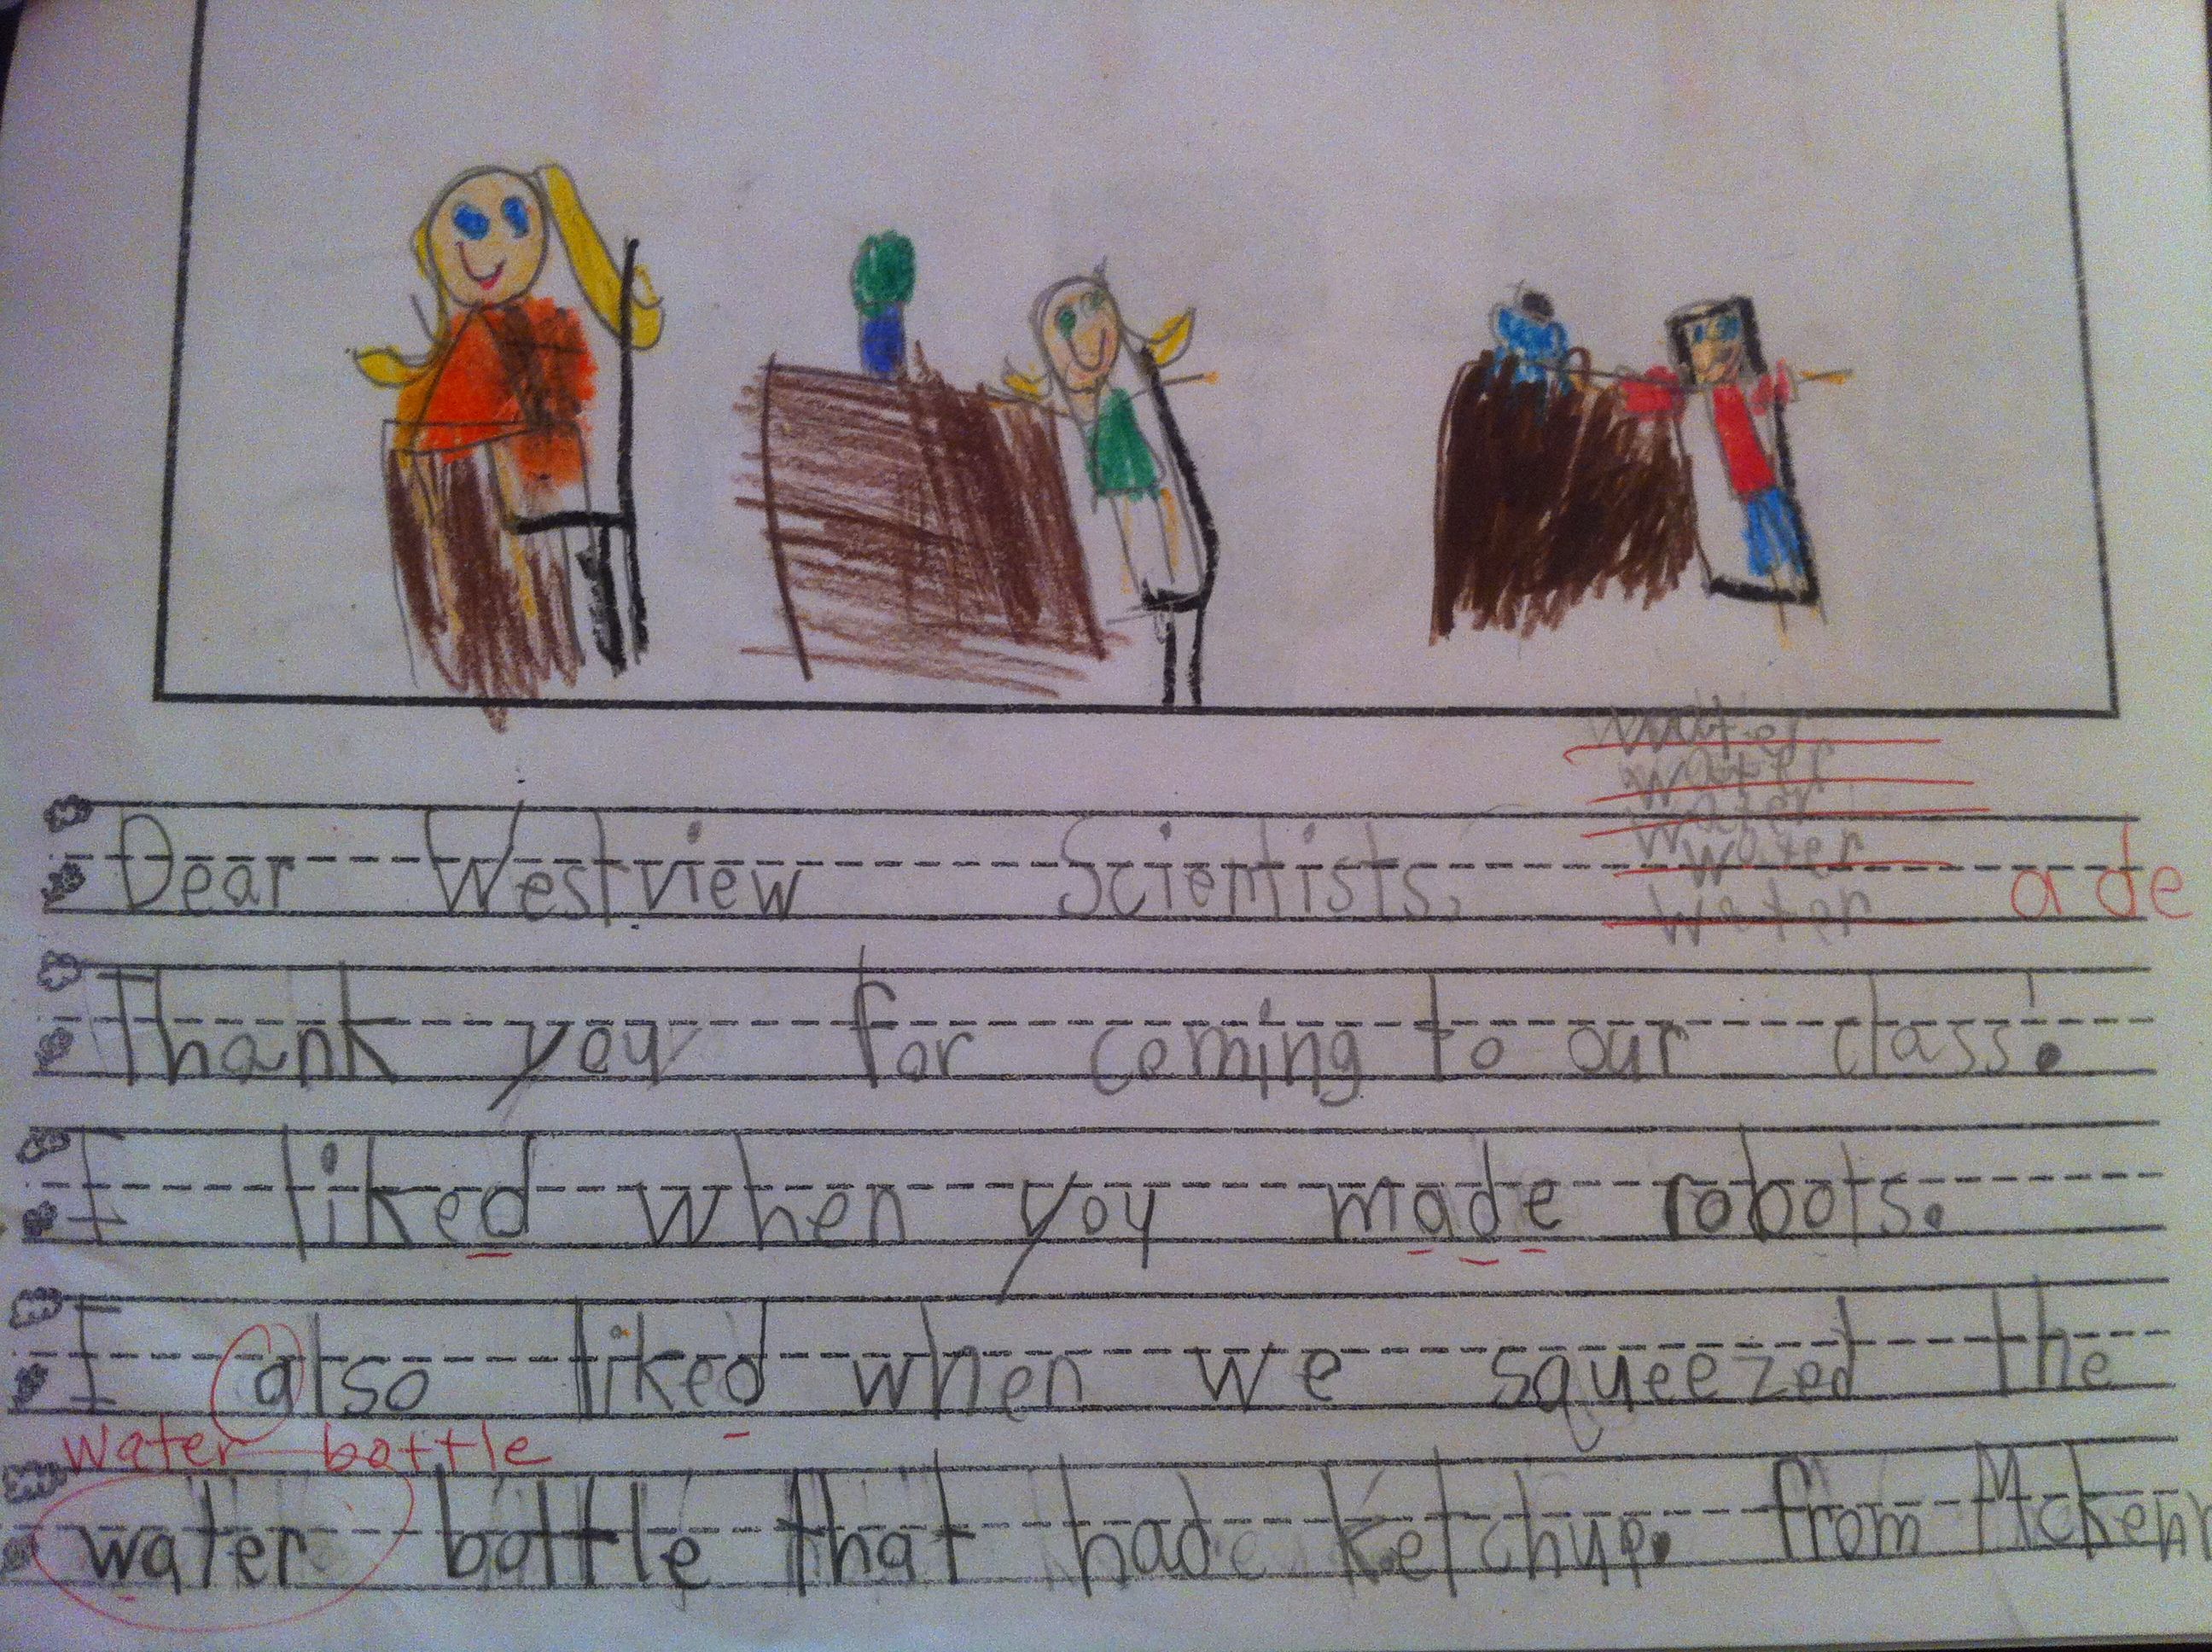 water
water
water
water
water
water
Dear Westview Scientists, a d e
Thank you for coming to our class.
I liked when you made robots.
I also liked when we squeezed the
water bottle
water bottle that had ketchup. from